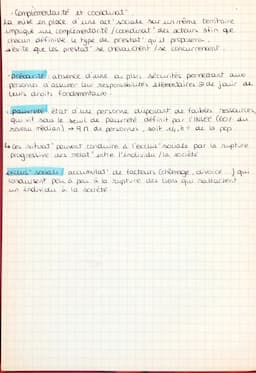 - Complémentarité et coordinat°
La mise en place d'une act° sociale sur un même territoire
implique une complémentarité / coordinat° des acteurs afin que
chacun définisse le type de prestat° qu'il proposera.
→ éviter que les prestat° se chevauchent / se concurrencent.
- Précarité : absence d'une ou plus. sécurités permettant aux
personnes d'assurer leur responsabilités élémentaires et de jouir de
leurs droits fondamentaux.
- pauvreté : état d'une personne disposant de faibles ressources,
qui vit sous le seuil de pauvreté définit par l'INSEE (60% du
revenu médian) → 9 M de personnes, soit de la pop.
↳ ces situat° peuvent conduire à l'exclus° sociale par la rupture
progressive des relat° entre l'individu / la société
exclus° sociale : accumulat° de facteurs (chômage, divorce...) qui
conduisent peu à peu à la rupture des liens qui rattachent
un individu à la société.